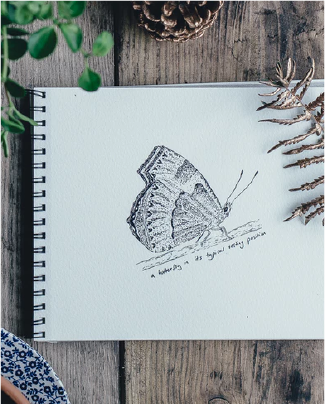 a butterfly in its typical resting position